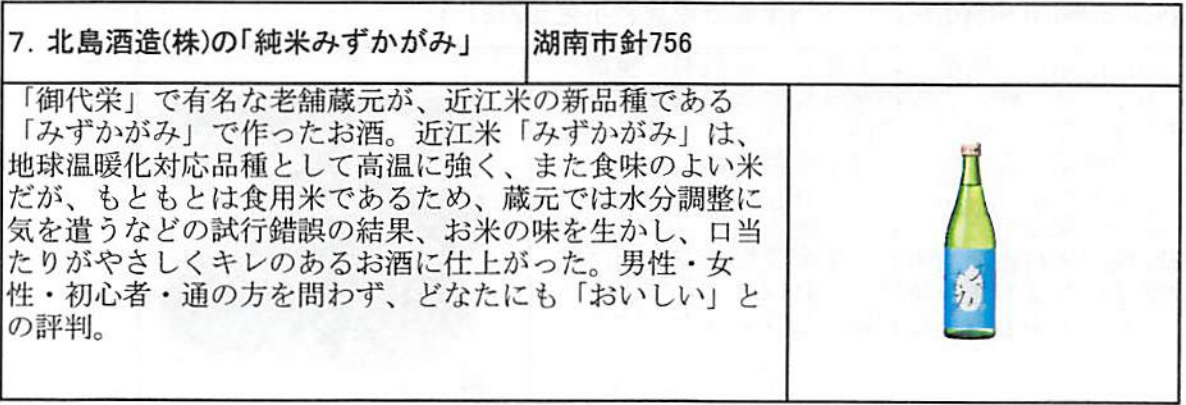 7. 北島酒造(株)の「純米みずかがみ」
湖南市針756
「御代栄」で有名な老舗蔵元が、近江米の新品種である
「みずかがみ」で作ったお酒。近江米「みずかがみ」は、
地球温暖化対応品種として高温に強く、また食味のよい米
だが、もともとは食用米であるため、蔵元では水分調整に
気を遣うなどの試行錯誤の結果、お米の味を生かし、口当
たりがやさしくキレのあるお酒に仕上がった。男性・女
性・初心者・通の方を問わず、どなたにも「おいしい」と
の評判。